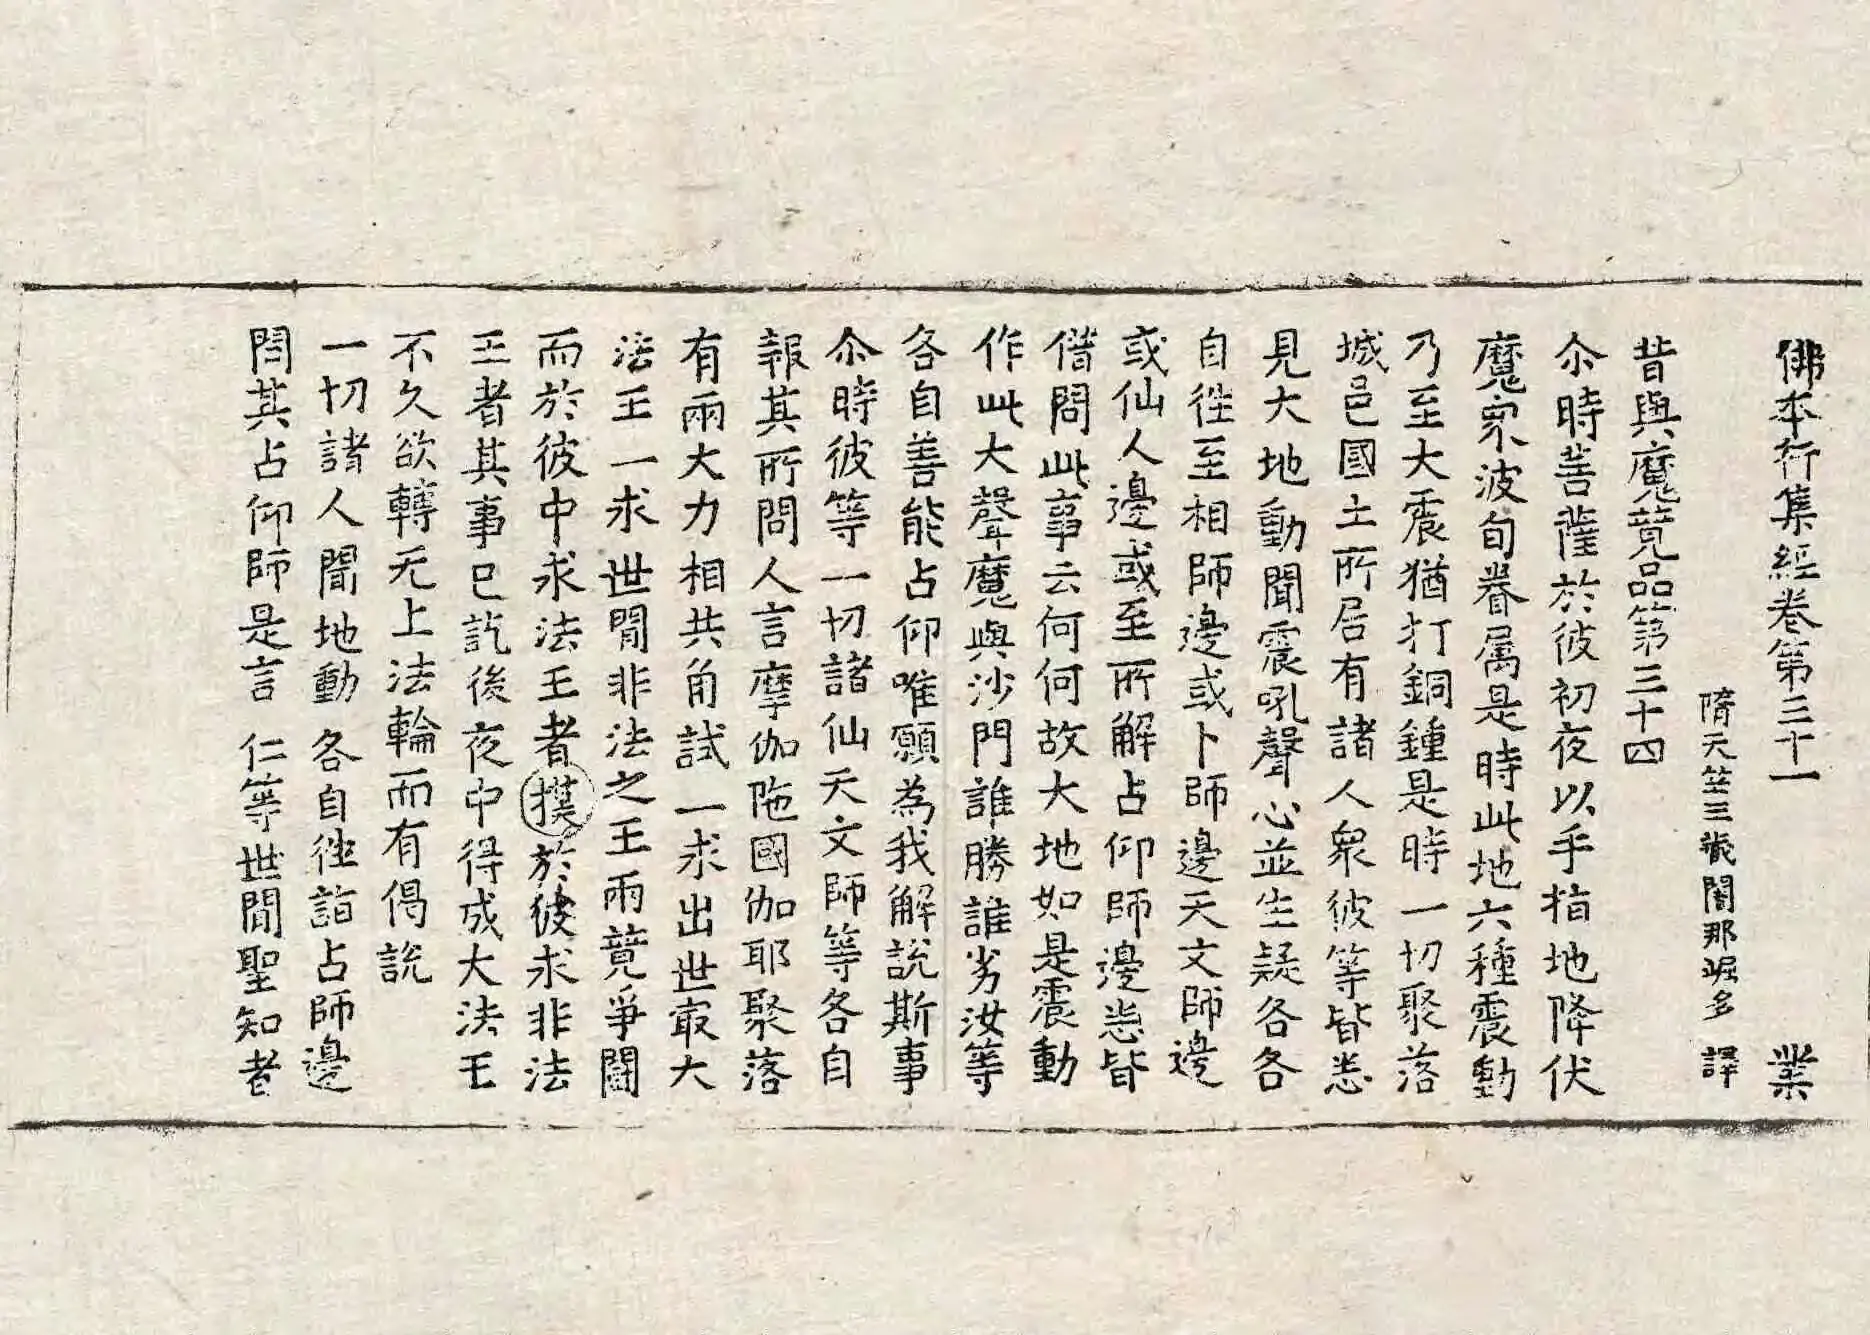 佛本行集經卷第三十一 業
隋天竺三藏闍那崛多 譯
昔與魔競品第三十四
尒時菩薩於彼初夜以手指地降伏
魔眾波旬眷属是時此地六種震動
乃至大震猶打銅鍾是時一切聚落
城邑國土所居有諸人眾彼等皆悉
見大地動聞震吼聲心並生疑各各
自往至相師邊或卜師邊天文師邊
或仙人邊或至所解占仰師邊悉皆
借問此事云何何故大地如是震動
作此大聲魔與沙門誰勝誰劣汝等
各自善能占仰唯願為我解說斯事
尒時彼等一切諸仙天文師等各自
報其所問人言摩伽陁國伽耶聚落
有兩大力相共角試一求出世㝡大
法王一求世間非法之王兩竟爭鬪
而於彼中求法王者撲於彼求非法
王者其事已訖後夜中得成大法王
不久欲轉无上法輪而有偈說
一切諸人聞地動 各自往詣占師邊
問其占仰師是言 仁等世間聖知者